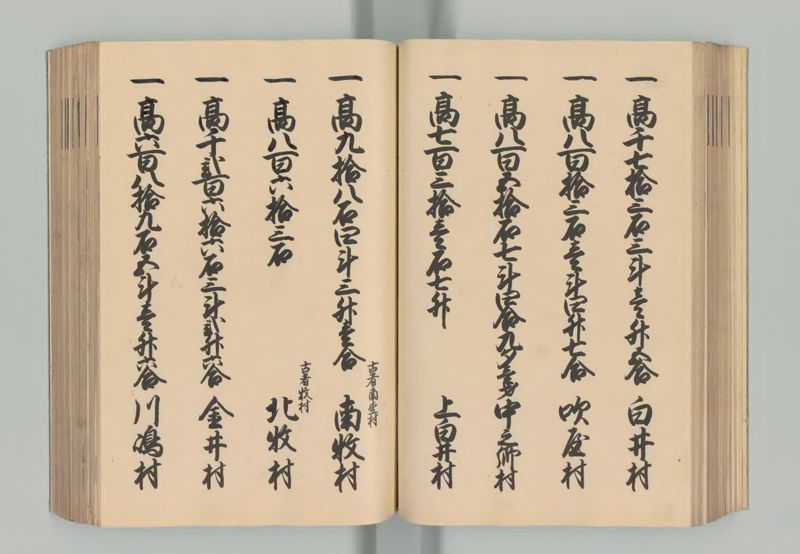 一高千七拾三石三斗壱升五合 白井村
一高八百拾三石壱斗四升七合 吹屋村
一高八百五拾石七斗四合九夕壱才 中之郷村
一高七百三拾壱石七升 上白井村
一高九拾八石四斗三升壱合 南牧村
古者南 村
一高八百六拾三石 北牧村
古者牧村
一高千弐百六拾六石三斗弐升六合 金井村
一高六百八拾九石五斗壱升六合 川嶋村